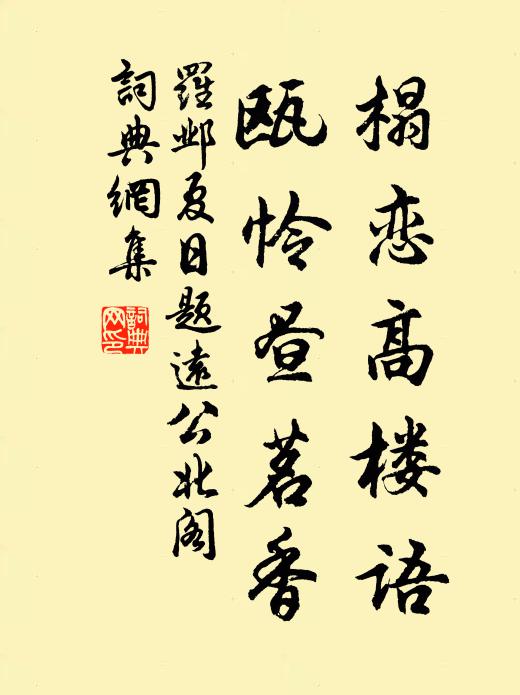 榻恋高楼语
瓯怜昼茗香
羅邺夏日题遠公北阁
詞典網集
詞典
网印